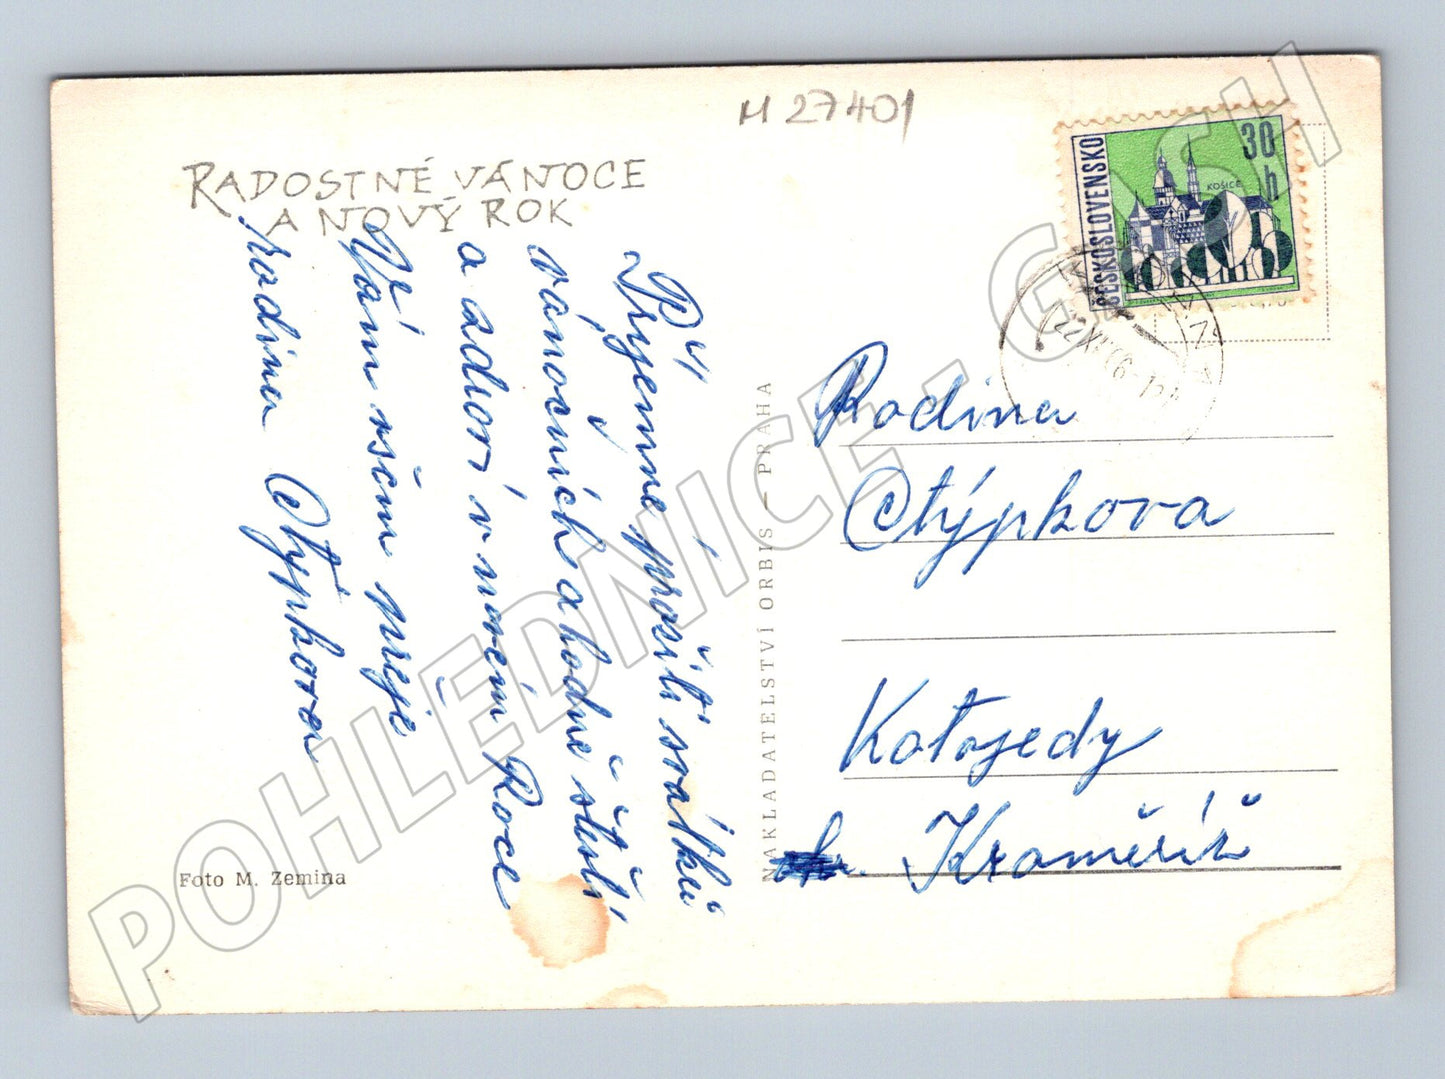 M 27401
RADOSTNÉ VÁNOCE
A NOVÝ ROK
Příjemné prožití svátků
vánočních a hodně štěstí
a zdraví v novém Roce
Vám všem přeje
rodina Otýpkova
Foto M. Zemina
NAKLADATELSTVÍ ORBIS – PRAHA
ČESKOSLOVENSKO
30
h
KOŠICE
Rodina
Otýpkova
Kotojedy
Kroměříž
POHLEDNICE - GASH